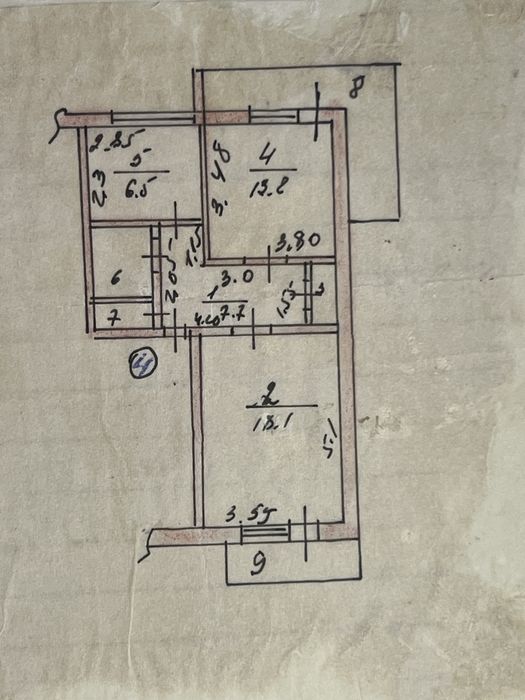 8
2.85
5
6.5
2.3
4
13.8
3.48
3.80
1.15
6
2.05
3.0
1
7.7
4.60
1.55
3
7
4
2
18.1
5.1
3.55
9